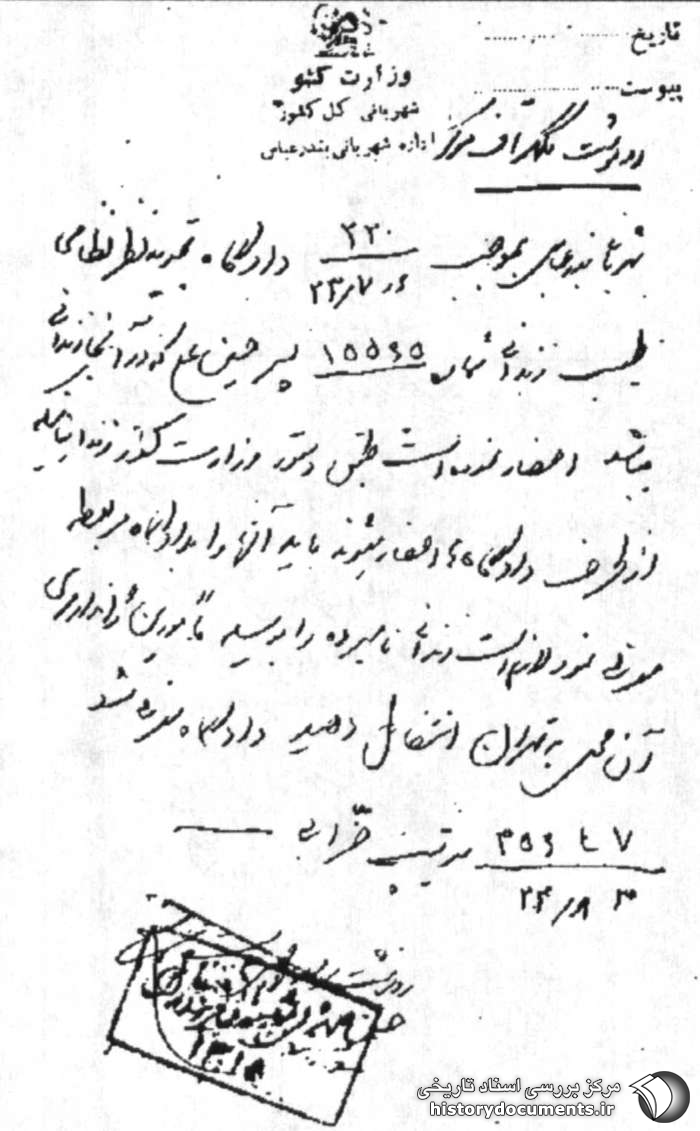 تاریخ
پیوست
وزارت کشو
شهربانی کل کشور
اداره شهربانی بندرعباس
رونوشت تلگراف مرکز
شهربانی بندرعباس بموجب ۲۲۰ دادگاه تجدیدنظر نظامی
۲۳/۷
طیب زندانی شماره ۱۵۵۶۵ پسر حسین علی که در آنجا زندانی
میباشد احضار نموده است طبق دستور وزارت کشور زندانیانیکه
از طرف دادگاه ها احضار میشوند باید آنها را بدادگاه مربوطه
معرفی نمود لازم است زندانی نامبرده را بوسیله مأمورین ژاندارمری
آن محل به تهران انتقال دهید دادگاه معرفی شود
سرتیپ ضرابی
رونوشت
مرکز بررسی اسناد تاریخی
historydocuments.ir